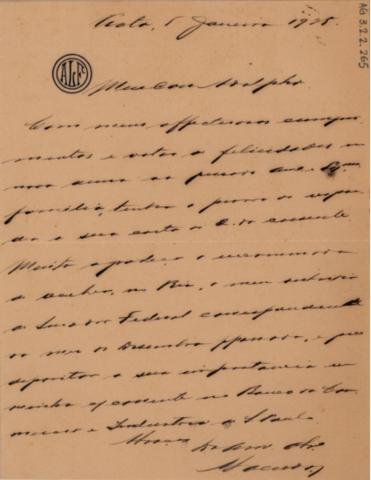 AG 3.2.2.265
5 Janeiro 1925.
ALF
Meu caro Adolpho
Com meus affectuosos cumpri
mentos e votos de felicidades no
novo anno ao prezado am.º e Ex.ma
familia, tenho o prazer de respon
der a sua carta de 2 do corrente.
Muito agradeço o incommodo
de receber, no Rio, o meu subsidio
de Senador Federal correspondente
ao mez de Dezembro p passado, e
depositar a sua importancia em
minha c/ corrente no Banco do Com
mercio e Industria de S Paulo